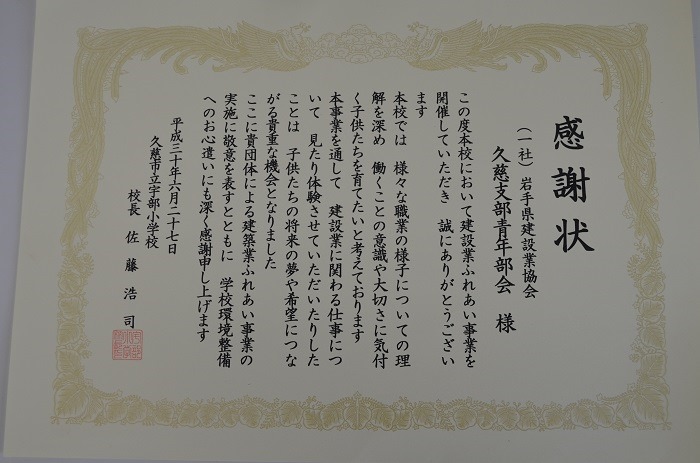 感謝状
（一社）岩手県建設業協会
久慈支部青年部会 様
この度本校において建設業ふれあい事業を
開催していただき 誠にありがとうござい
ます
本校では 様々な職業の様子についての理
解を深め 働くことの意識や大切さに気付
く子供たちを育てたいと考えております
本事業を通して 建設業に関わる仕事につ
いて 見たり体験させていただいたりした
ことは 子供たちの将来の夢や希望につな
がる貴重な機会となりました
ここに貴団体による建築業ふれあい事業の
実施に敬意を表すとともに 学校環境整備
へのお心遣いにも深く感謝申し上げます
平成三十年六月二十七日
久慈市立宇部小学校
校長 佐藤浩司